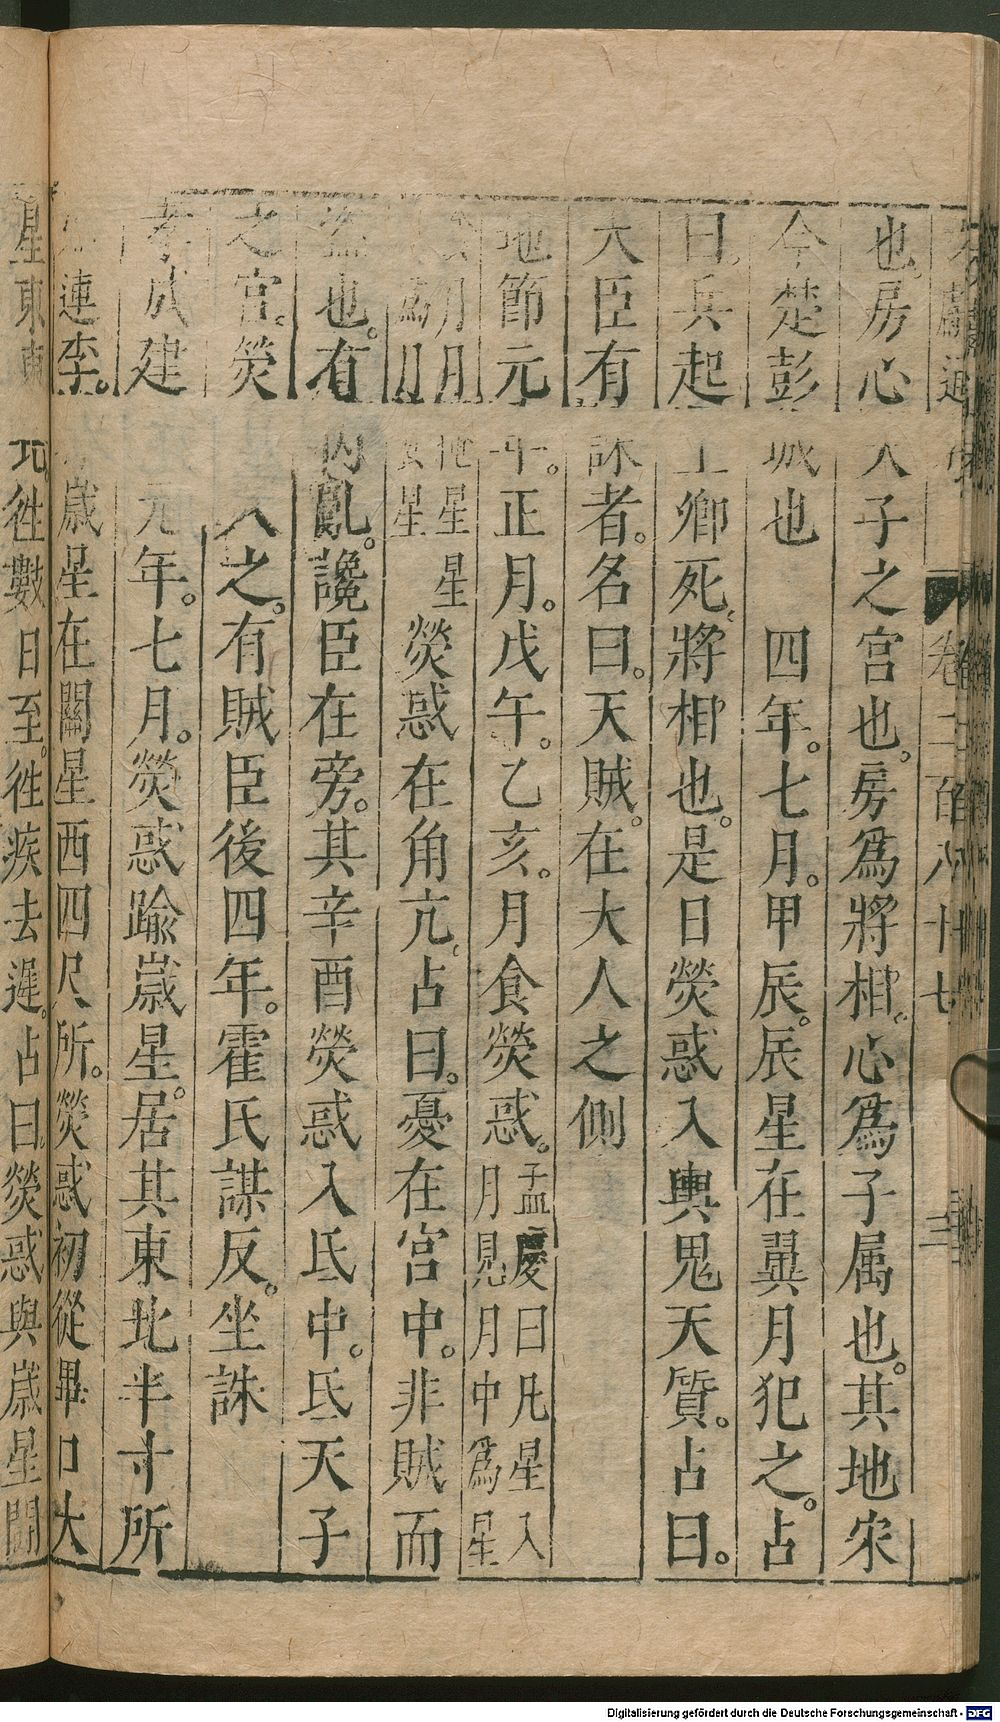 卷二百八十七
三
也。房心天子之宮也。房爲將相。心爲子属也。其地宋
今楚彭城也　四年。七月。甲辰。辰星在翼月犯之。占
曰。兵起上卿死。將相也。是日熒惑入輿鬼天質。占曰。
大臣有誅者。名曰。天賊。在大人之側
地節元年。正月。戊午。乙亥。月食熒惑。孟康曰凡星入月見月中爲星
月月星星　熒惑在角亢。占曰。憂在宮中。非賊而
盜也。有內亂。讒臣在旁。其辛酉熒惑入氐中。氐天子
之宮。熒入之。有賊臣後四年。霍氏謀反。坐誅
孝成建　元年。七月。熒惑踰歲星。居其東北半寸所
連李。歲星在關星西四尺所。熒惑初從畢口大
星東東北。徃數日至。徃疾去遲。占曰。熒惑與歲星鬭
Digitalisierung gefördert durch die Deutsche Forschungsgemeinschaft - DFG